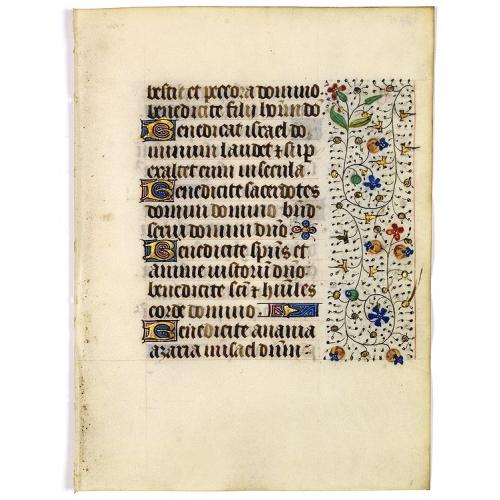 bestie et peccora domino
benedicite filii hoim do
Benedicat israel do
minum laudet et sup
exaltet eum in secula.
Benedicite sacerdotes
domini domino bnd
serui domini dno
Benedicite spus et
anime iustoru dno
benedicite sci et humiles
corde domino
Benedicite anania
azaria misael dum